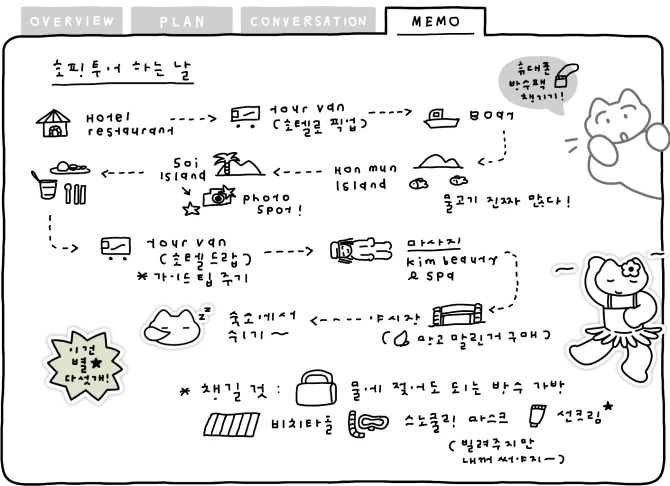 OVERVIEW
PLAN
CONVERSATION
MEMO
호핑투어 하는 날
휴대폰
방수팩
챙기기!
Hotel
restaurant
tour van
(호텔로 픽업)
Boat
Hon mun
Island
물고기 진짜 많다!
Soi
Island
photo
spot!
tour van
(호텔 드랍)
* 가이드 팁 주기
마사지
Kim beauty
& spa
야시장
( 망고 말린거 구매)
숙소에서
쉬기~
z z
이건
별★
다섯개!
* 챙길 것 :
물에 젖어도 되는 방수 가방
비치타올
스노쿨링 마스크
선크림★
(빌려주지만
내꺼 써야지~)